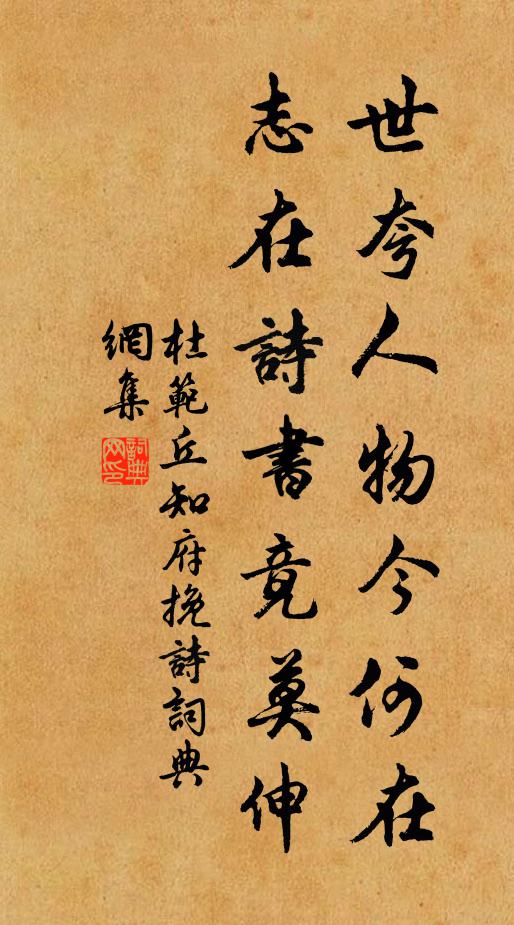 世夸人物今何在
志在詩書竟莫伸
杜範丘知府挽詩詞典
網集
詞典
网印